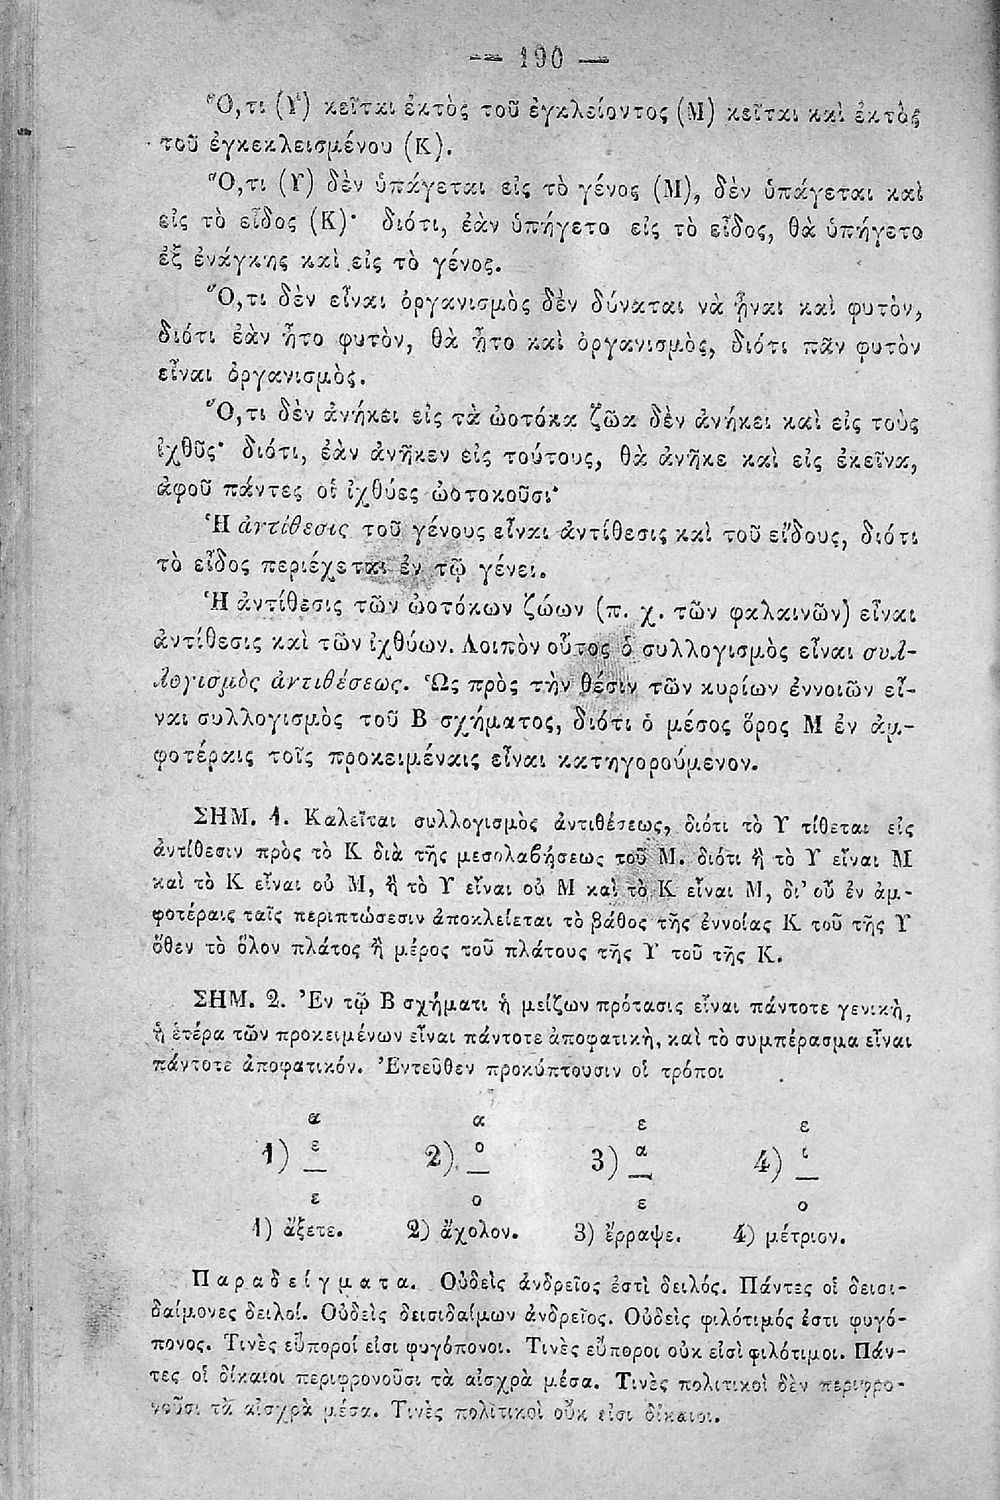 — 190 —
Ὅ,τι (Υ) κεῖται ἐκτὸς τοῦ ἐγκλείοντος (Μ) κεῖται καὶ ἐκτὸς
τοῦ ἐγκεκλεισμένου (Κ).
Ὅ,τι (Υ) δὲν ὑπάγεται εἰς τὸ γένος (Μ), δὲν ὑπάγεται καὶ
εἰς τὸ εἶδος (Κ)· διότι, ἐὰν ὑπήγετο εἰς τὸ εἶδος, θὰ ὑπήγετο
ἐξ ἐνάγκης καὶ εἰς τὸ γένος.
Ὅ,τι δὲν εἶναι ὀργανισμὸς δὲν δύναται νὰ ᾖναι καὶ φυτὸν,
διότι ἐὰν ἦτο φυτὸν, θὰ ἦτο καὶ ὀργανισμὸς, διότι πᾶν φυτὸν
εἶναι ὀργανισμὸς.
Ὅ,τι δὲν ἀνήκει εἰς τὰ ὠοτόκα ζῶα δὲν ἀνήκει καὶ εἰς τοὺς
ἰχθῦς· διότι, ἐὰν ἀνῆκεν εἰς τούτους, θὰ ἀνῆκε καὶ εἰς ἐκεῖνα,
ἀφοῦ πάντες οἱ ἰχθύες ὠοτοκοῦσι·
Ἡ ἀντίθεσις τοῦ γένους εἶναι ἀντίθεσις καὶ τοῦ εἴδους, διότι
τὸ εἶδος περιέχεται ἐν τῷ γένει.
Ἡ ἀντίθεσις τῶν ὠοτόκων ζώων (π. χ. τῶν φαλαινῶν) εἶναι
ἀντίθεσις καὶ τῶν ἰχθύων. Λοιπὸν οὗτος ὁ συλλογισμὸς εἶναι συλ-
λογισμὸς ἀντιθέσεως. Ὡς πρὸς τὴν θέσιν τῶν κυρίων ἐννοιῶν εἶ-
ναι συλλογισμὸς τοῦ Β σχήματος, διότι ὁ μέσος ὅρος Μ ἐν ἀμ-
φοτέραις τοῖς προκειμέναις εἶναι κατηγορούμενον.
ΣΗΜ. 1. Καλεῖται συλλογισμὸς ἀντιθέσεως, διότι τὸ Υ τίθεται εἰς
ἀντίθεσιν πρὸς τὸ Κ διὰ τῆς μεσολαβήσεως τοῦ Μ. διότι ἢ τὸ Υ εἶναι Μ
καὶ τὸ Κ εἶναι οὐ Μ, ἢ τὸ Υ εἶναι οὐ Μ καὶ τὸ Κ εἶναι Μ, δι' οὗ ἐν ἀμ-
φοτέραις ταῖς περιπτώσεσιν ἀποκλείεται τὸ βάθος τῆς ἐννοίας Κ τοῦ τῆς Υ
ὅθεν τὸ ὅλον πλάτος ἢ μέρος τοῦ πλάτους τῆς Υ τοῦ τῆς Κ.
ΣΗΜ. 2. Ἐν τῷ Β σχήματι ἡ μείζων πρότασις εἶναι πάντοτε γενικὴ,
ἡ ἑτέρα τῶν προκειμένων εἶναι πάντοτε ἀποφατικὴ, καὶ τὸ συμπέρασμα εἶναι
πάντοτε ἀποφατικόν. Ἐντεῦθεν προκύπτουσιν οἱ τρόποι
α α ε ε
1) ε 2) ο 3) α 4) ι
ε ο ε ο
1) ἄξετε. 2) ἄχολον. 3) ἔρραψε. 4) μέτριον.
Παραδείγματα. Οὐδεὶς ἀνδρεῖος ἐστὶ δειλός. Πάντες οἱ δεισι-
δαίμονες δειλοί. Οὐδεὶς δεισιδαίμων ἀνδρεῖος. Οὐδεὶς φιλότιμός ἐστι φυγό-
πονος. Τινὲς εὔποροί εἰσι φυγόπονοι. Τινὲς εὔποροι οὐκ εἰσὶ φιλότιμοι. Πάν-
τες οἱ δίκαιοι περιφρονοῦσι τὰ αἰσχρὰ μέσα. Τινὲς πολιτικοὶ δὲν περιφρο-
νοῦσι τὰ αἰσχρὰ μέσα. Τινὲς πολιτικοὶ οὔκ εἰσι δίκαιοι.